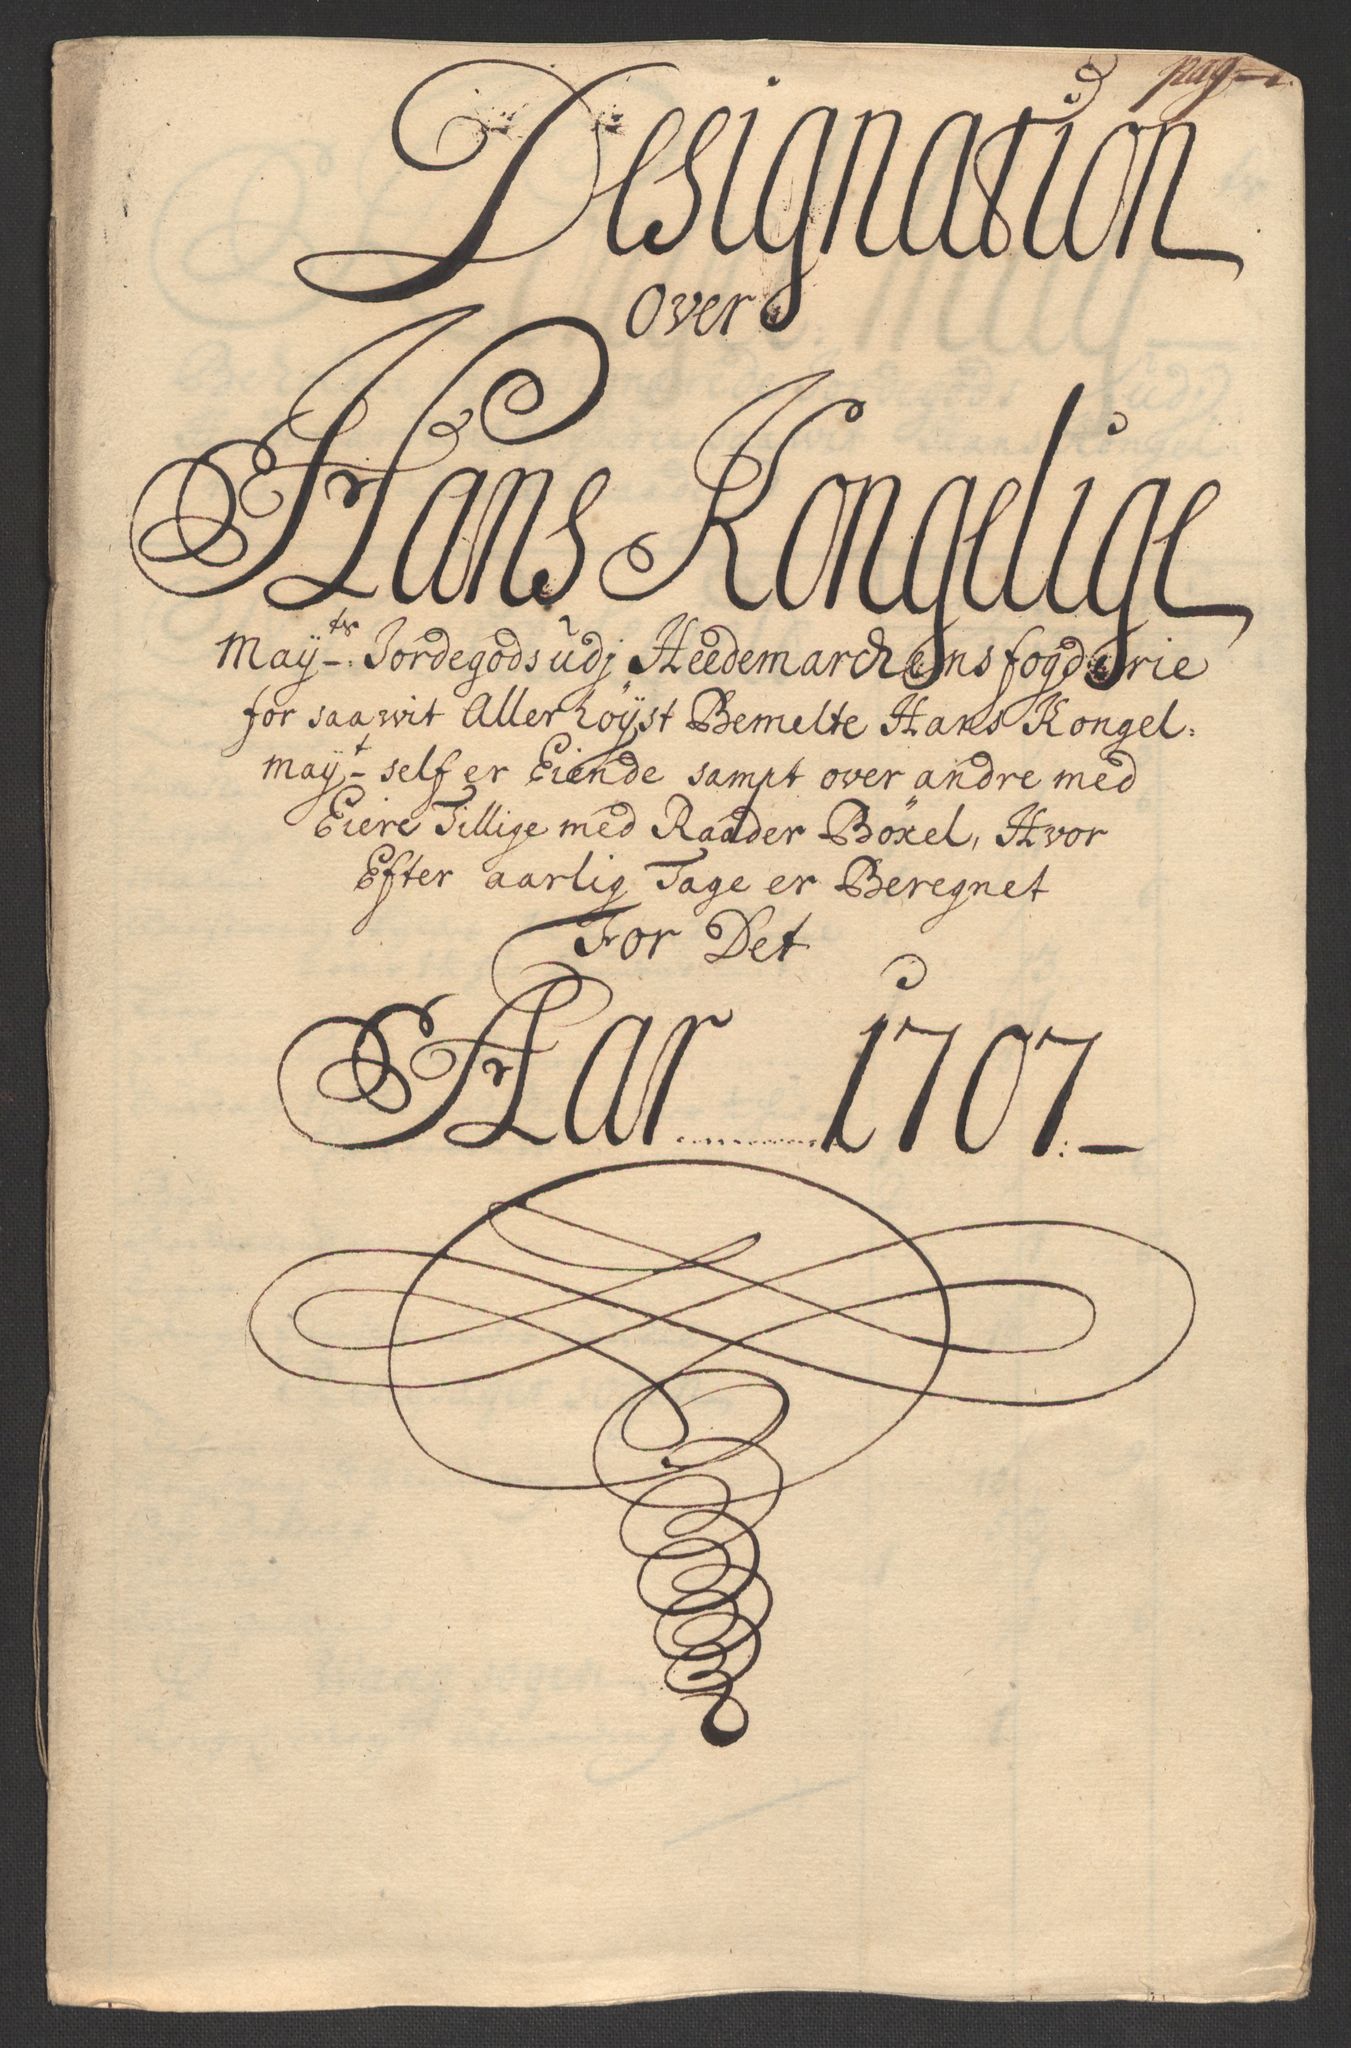 pag 1.
Designation
over
Hans Kongelige
Mayts. Jordegods udj Heedemarchens fogderie
for saawit Allerhöyst Bemelte Hans Kongel:
mayt self er Eiende sampt over andre med
Eiere Tillige med Raader Böxel, Hvor
Efter aarlig Tage er Beregnet
For Det
Aar 1707